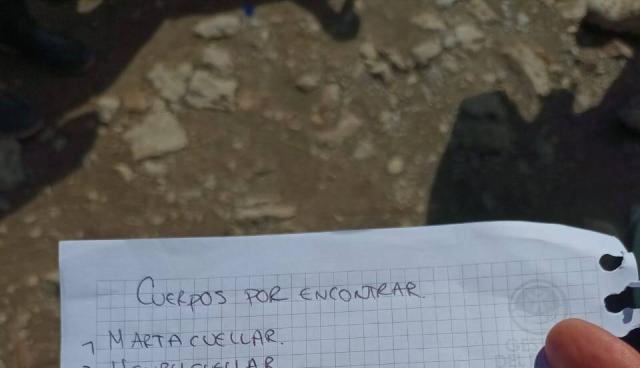 CUERPOS POR ENCONTRAR
MARTA CUELLAR.
CUELLAR